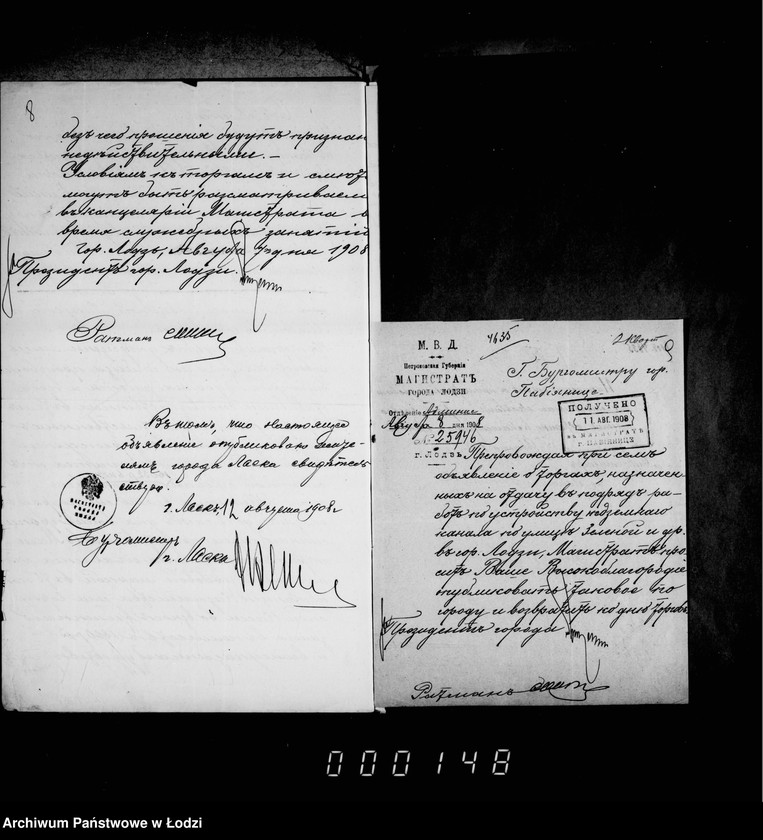 8
безъ чего прошенія будутъ признан
недѣйствительными. —
Условія къ торгамъ и смѣт
могутъ быть разсматриваем
въ канцеляріи Магистрата в
время служебныхъ занятій
гор. Лодзь, Августа дня 1908
Президентъ гор. Лодзи.
Ратманъ
Въ томъ, что настоящее
объявленіе опубликовано
города Ласка свидѣтель
ствую.
г. Ласкъ, 12 августа 1908 г.
Бургомистръ
г. Ласка
9
М. В. Д.
Петроковская Губернія
МАГИСТРАТЪ
ГОРОДА ЛОДЗИ
Отдѣленіе
Августа 8 дня 1908
№ 25946
г. Лодзь
7435
Г. Бургомистру гор.
Пабіянице.
ПОЛУЧЕНО
11 АВГ. 1908
въ МАГИСТРАТѢ
г. ПАБІЯНИЦЕ
Препровождая при семъ
объявленіе о торгахъ, назначен
ныхъ на отдачу въ подрядъ ра-
ботъ по устройству подземнаго
канала по улицѣ Зеленой и др.
въ гор. Лодзи, Магистратъ про
ситъ Ваше Высокоблагородіе
публиковать таковое по
городу и возвратить ко дню торговъ
Президентъ города
Ратманъ
000148
Archiwum Państwowe w Łodzi